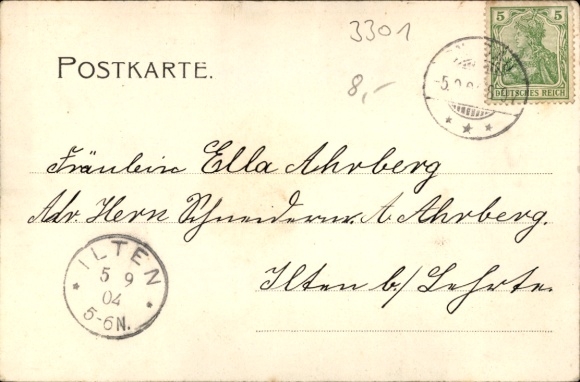 3301
8,-
POSTKARTE.
5 5
DEUTSCHES REICH
Fräulein Ella Ahrberg
Adr. Herrn Schneiderm. A. Ahrberg.
Ilten b/ Lehrte.
ILTEN
5 9
04
5-6N.